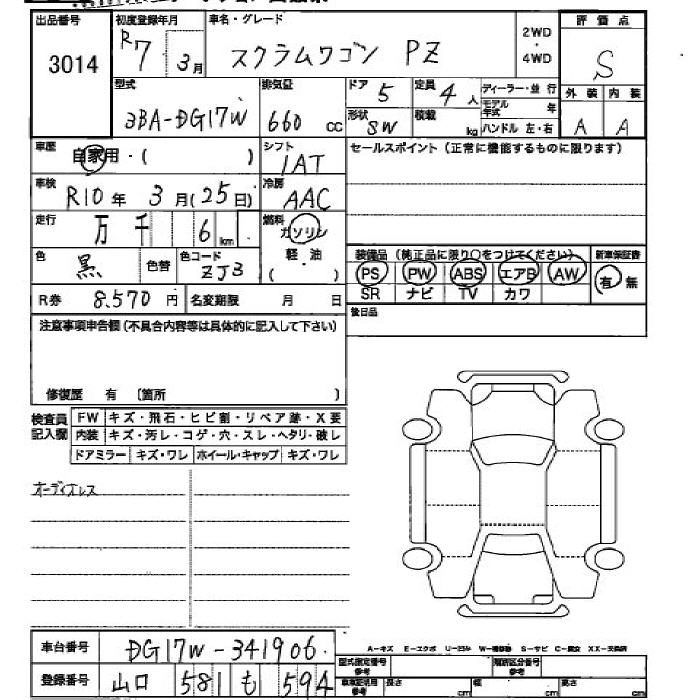 出品番号 3014
初度登録年月 R7 3月
車名・グレード スクラムワゴン PZ
2WD・4WD
評価点 S
型式 3BA-DG17W
排気量 660 cc
ドア 5
形状 SW
定員 4人
積載 kg
ディーラー・並行
モデル年式 年
ハンドル 左・右
外装 A
内装 A
車歴 自家用・( )
シフト IAT
セールスポイント(正常に機能するものに限ります)
車検 R10年 3月(25日)
冷房 AAC
走行 万千 6 km
燃料 ガソリン 軽・油 ( )
色 黒
色替
色コード ZJ3
装備品(純正品に限り○をつけてください)
新車保証書 有 無
PS PW ABS エアB AW
SR ナビ TV カワ
R券 8.570円
名変期限 月 日
後日品
注意事項申告欄(不具合内容等は具体的に記入して下さい)
修復歴 有 〔箇所 )
検査員記入欄
FW キズ・飛石・ヒビ割・リペア跡・X要
内装 キズ・汚レ・コゲ・穴・スレ・ヘタリ・破レ
ドアミラー キズ・ワレ ホイール・キャップ キズ・ワレ
オーディオレス
車台番号 DG17W-341906
A-キズ E-エクボ U-凹み W-補修跡 S-サビ C-腐食 XX-交換済
型式指定番号 参考
類別区分番号 参考
登録番号 山口 581 も 594
車車証明用 参考 長さ cm 幅 cm 高さ cm